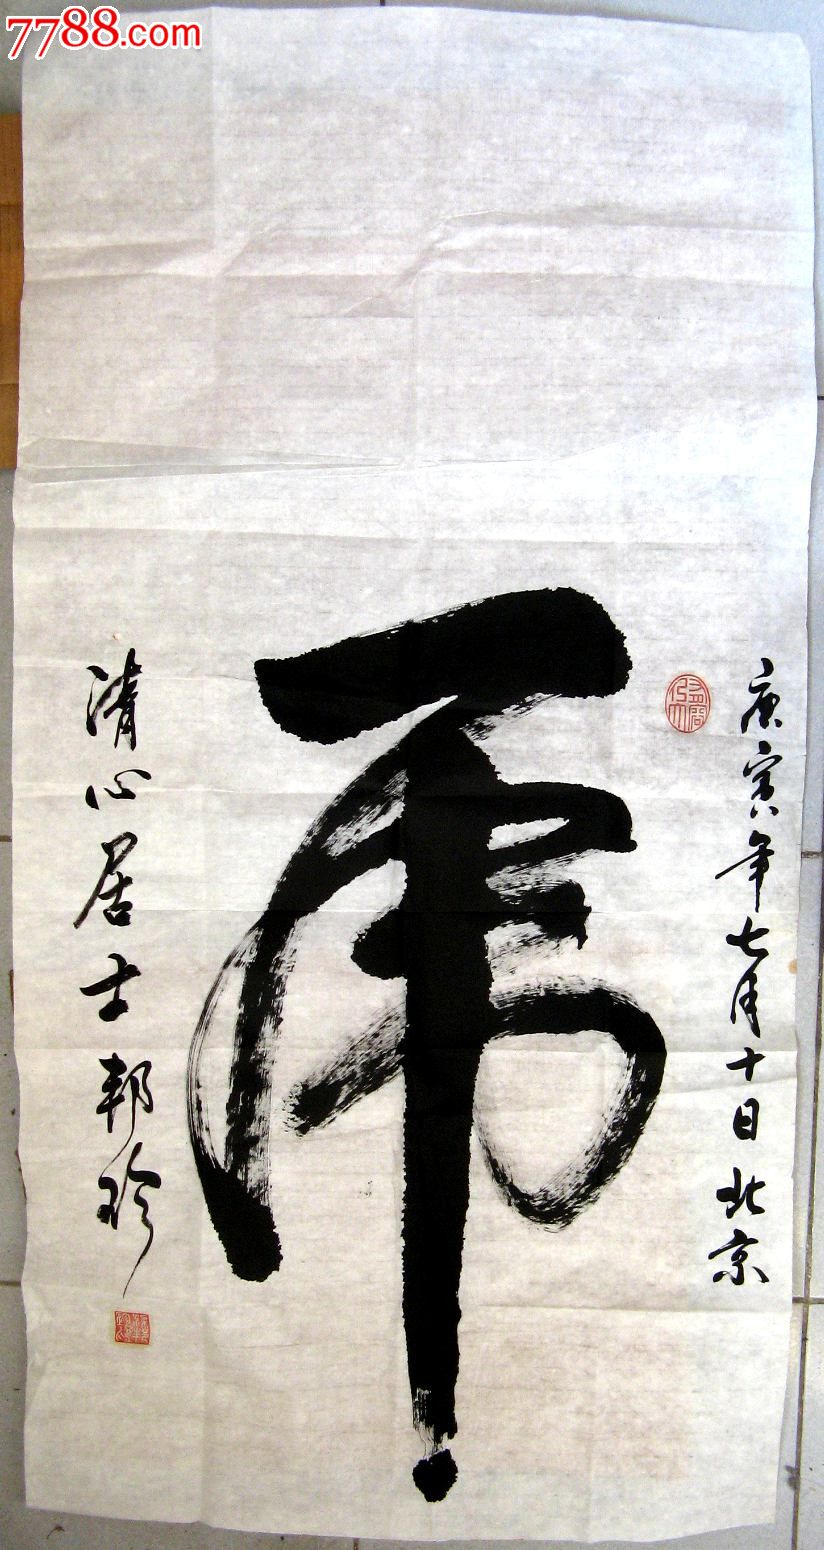 7788.com
庚寅年七月十日北京
虎
清心居士邦珍